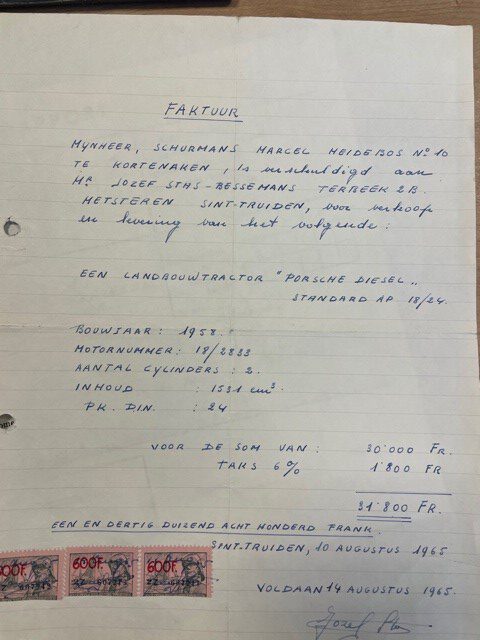 FAKTUUR
MYNHEER, SCHURMANS MARCEL HEIDEBOS N° 10
TE KORTENAKEN, Is verschuldigd aan
Hr JOZEF STAS-BESSEMANS TERBEEK 2B.
METSTEREN SINT-TRUIDEN, voor verkoop
en levering van het volgende:
EEN LANDBOUWTRACTOR "PORSCHE DIESEL„
STANDARD AP 18/24.
BOUWJAAR: 1958.
MOTORNUMMER: 18/2833
AANTAL CYLINDERS: 2.
INHOUD : 1531 cm³.
PK. DIN. : 24
VOOR DE SOM VAN: 30'000 FR.
TAKS 6% 1'800 FR
31'800 FR.
EEN EN DERTIG DUIZEND ACHT HONDERD FRANK.
SINT-TRUIDEN, 10 AUGUSTUS 1965
600F. 600F. 600F.
VOLDAAN 14 AUGUSTUS 1965.
Jozef